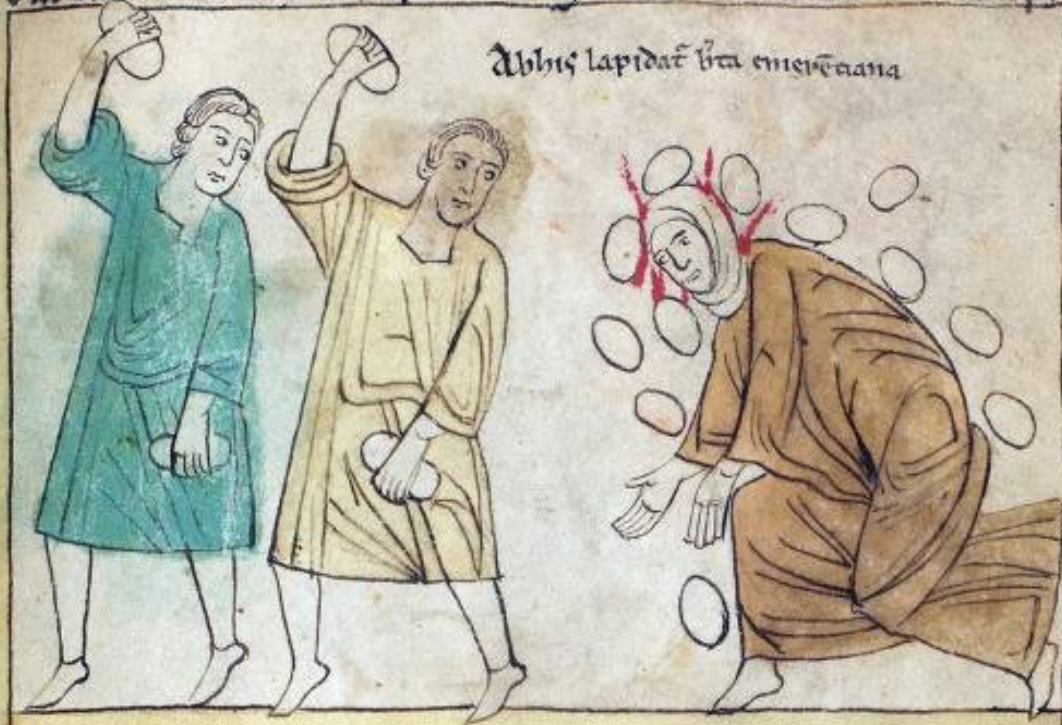 Ab his lapidat̃ b̃ta emerẽciana